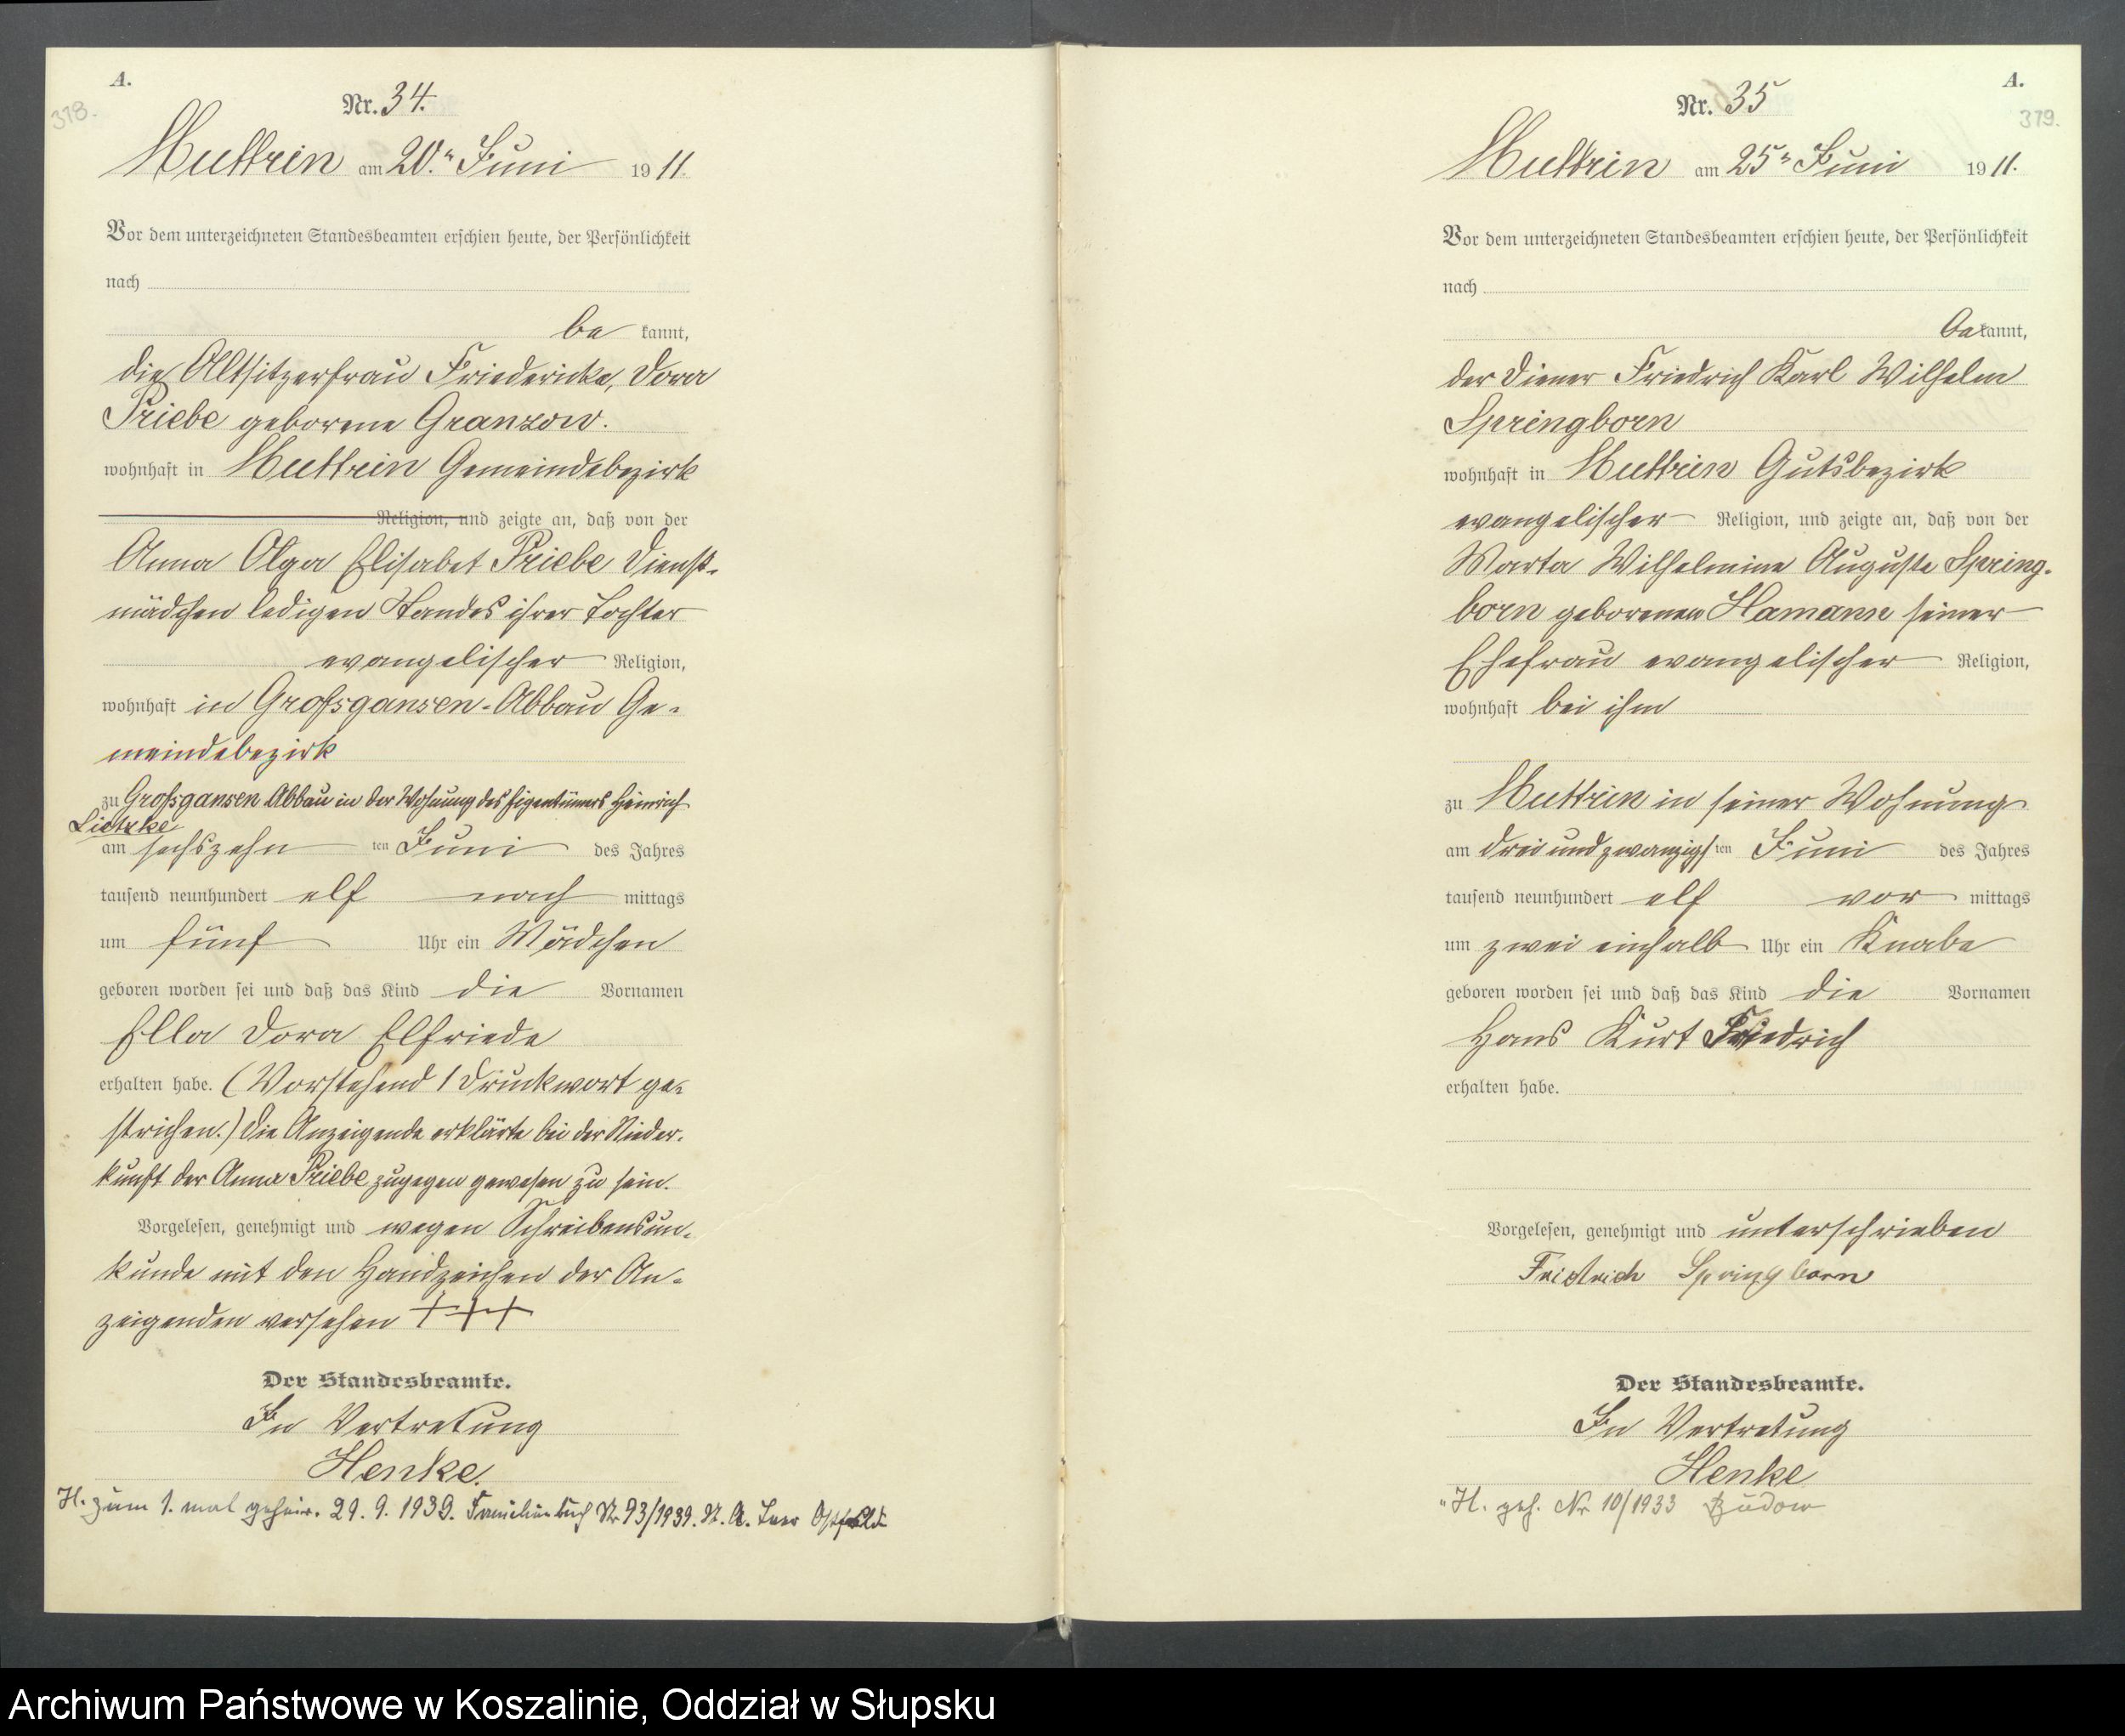 A.
378.
Nr. 34.
Muttrin am 20.n Juni 1911.
Vor dem unterzeichneten Standesbeamten erschien heute, der Persönlichkeit
nach
be kannt,
die Altsitzerfrau Friedericke, Dora
Priebe geborene Granzow.
wohnhaft in Muttrin Gemeindebezirk
Religion, und zeigte an, daß von der
Anna Olga Elisabet Priebe Dienst-
mädchen ledigen Standes ihrer Tochter
evangelischer Religion,
wohnhaft in Großgansen-Abbau Ge-
meindebezirk
zu Großgansen Abbau in der Wohnung des Eigentümers Heinrich
Lietzke
am sechszehn ten Juni des Jahres
tausend neunhundert elf nach mittags
um fünf Uhr ein Mädchen
geboren worden sei und daß das Kind die Vornamen
Ella Dora Elfriede
erhalten habe. (Vorstehend 1 Druckwort ge-
strichen.) Die Anzeigende erklärte bei der Nieder-
kunft der Anna Priebe zugegen gewesen zu sein.
Vorgelesen, genehmigt und wegen Schreibensun-
kunde mit den Handzeichen der An-
zeigenden versehen +++
Der Standesbeamte.
In Vertretung
Henke.
H. zum 1. mal geheir. 29. 9. 1939. Familienbuch Nr 93/1939. St. A.
A.
379.
Nr. 35
Muttrin am 25n Juni 1911.
Vor dem unterzeichneten Standesbeamten erschien heute, der Persönlichkeit
nach
be kannt,
der Diener Friedrich Karl Wilhelm
Springborn
wohnhaft in Muttrin Gutsbezirk
evangelischer Religion, und zeigte an, daß von der
Marta Wilhelmine Auguste Spring-
born geborenen Hamann seiner
Ehefrau evangelischer Religion,
wohnhaft bei ihm
zu Muttrin in seiner Wohnung
am drei und zwanzigsten Juni des Jahres
tausend neunhundert elf vor mittags
um zwei einhalb Uhr ein Knabe
geboren worden sei und daß das Kind die Vornamen
Hans Kurt Friedrich
erhalten habe.
Vorgelesen, genehmigt und unterschrieben
Friedrich Springborn
Der Standesbeamte.
In Vertretung
Henke
H. geh. Nr 10/1933 Budow
Archiwum Państwowe w Koszalinie, Oddział w Słupsku